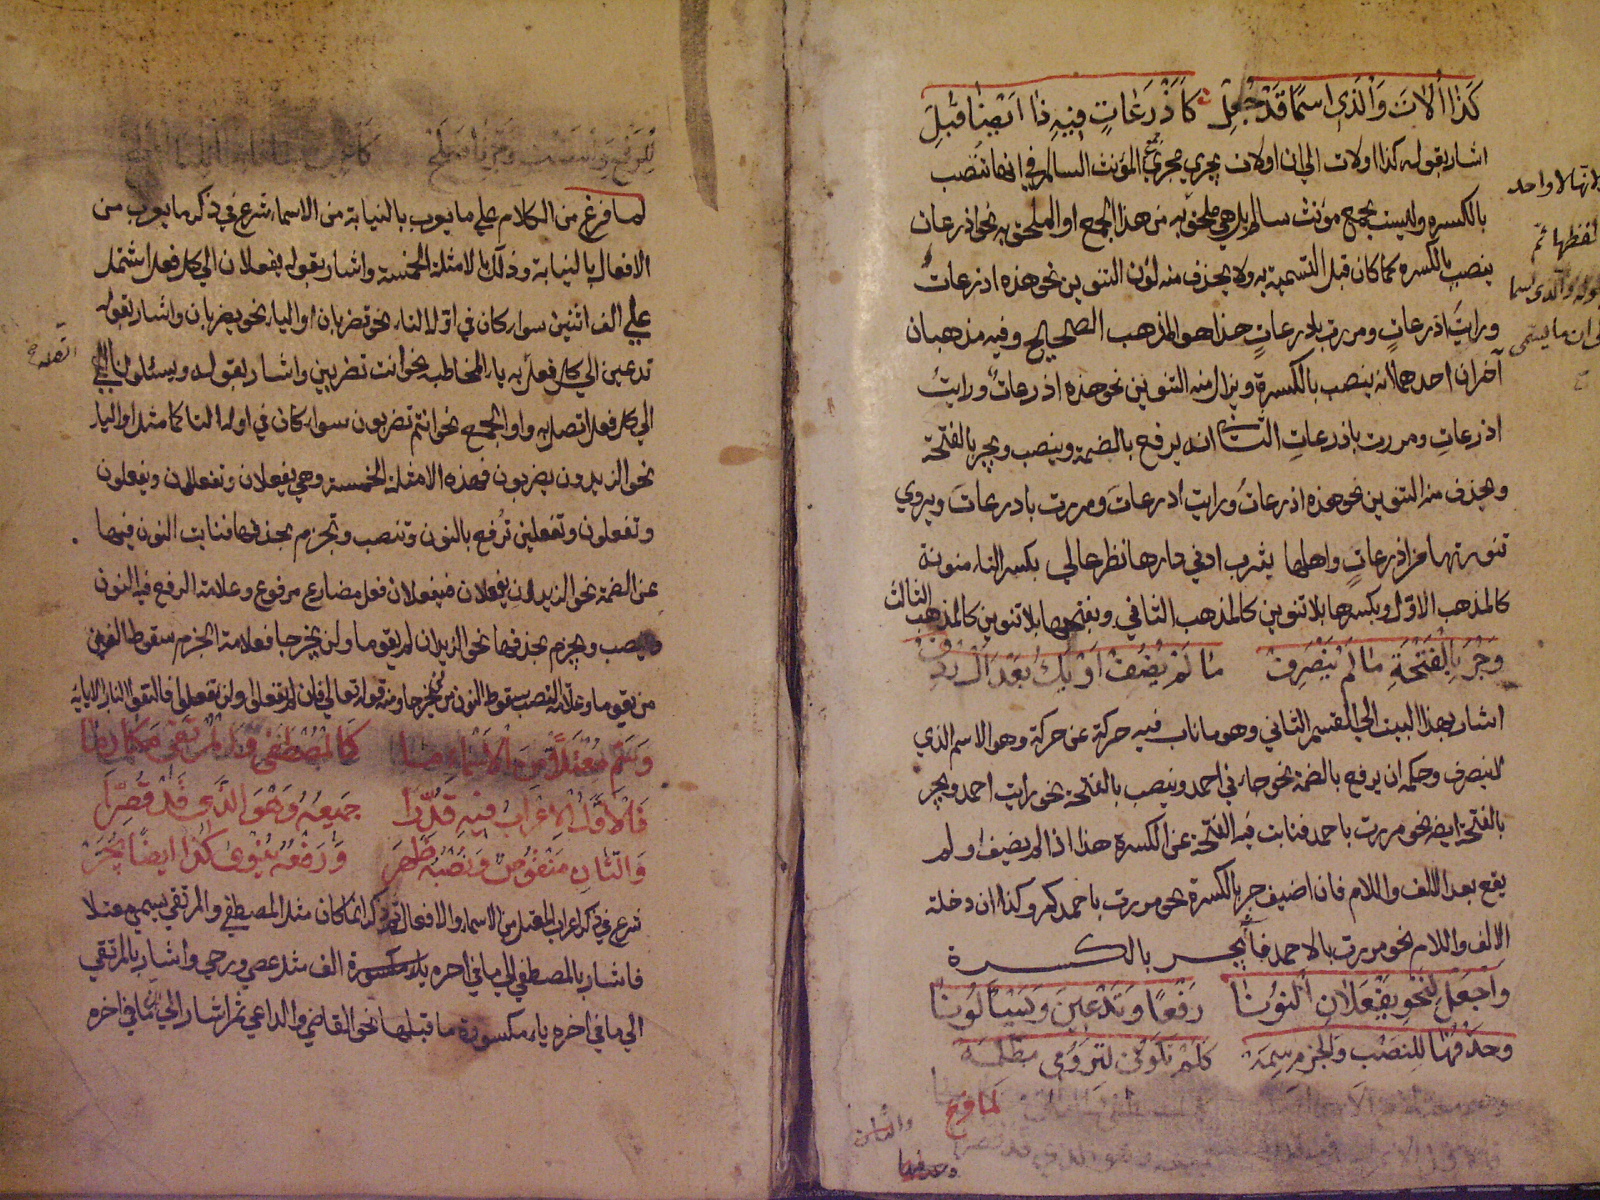 كَذَا أُلَاتُ وَالَّذِي اسمًا قَدْ جُعِلْ كَأَذْرِعَاتٍ فِيهِ ذَا أَيْضًا قُبِلْ
اشار بقوله كذا اولات الي ان اولات يجري مجري جمع المؤنث السالم في انها تنصب
بالكسرة وليست بجمع مؤنث سالم بل هي ملحق به من هذا الجمع او الملحق به نحو اذرعات
ينصب بالكسره كما كان قبل التسمية به ولا يحذف منه لون التنوين نحو هذه اذرعات
ورايت اذرعاتٍ ومررت باذرعاتٍ هذا هو المذهب الصحيح وفيه مذهبان
آخران احدهما انه ينصب بالكسرة ويزال منه التنوين نحو هذه اذرعاتُ ورايت
اذرعاتِ ومررت باذرعاتِ الثاني انه يرفع بالضمة وينصب ويجر بالفتحة
ويحذف منه التنوين نحو هذه اذرعاتُ ورايت اذرعاتَ ومررت باذرعاتَ ويروي
تنورتها من اذرعاتٍ واهلها يثرب ادني دارها نظر عالي بكسر التاء منونة
كالمذهب الاول وبكسرها بلا تنوين كالمذهب الثاني وبفتحها بلا تنوين كالمذهب الثالث
وَجُرَّ بِالْفَتْحَةِ مَا لَمْ يَنْصَرِفْ مَا لَمْ يُضَفْ أَوْ يَكُ بَعْدَ اَلْ رَدِفْ
اشار بهذا البيت الي القسم الثاني وهو ما ناب فيه حركة عن حركة وهو الاسم الذي
لا ينصرف وحكمه ان يرفع بالضمة نحو جاءني احمد وينصب بالفتحة نحو رايت احمد ويجر
بالفتحة ايضا نحو مررت باحمد فنابت فيه الفتحة عن الكسرة هذا اذا لم يضف او لم
يقع بعد الالف واللام فان اضيف جر بالكسرة نحو مررت باحمدكم وكذا ان دخله
الالف واللام نحو مررت بالاحمد فانه يجر بالكسرة
وَاجْعَلْ لِنَحْوِ يَفْعَلَانِ النُّونَا رَفْعًا وَتَدْعِينَ وَيَسْأَلُونَا
وحَذْفُهَا لِلنَّصْب وَالْجَزْمِ سِمَهْ كَلَمْ تَكُونِي لِتَرُومِي مظلمه
لما فرغ
وحذفها
لانها لا واحد
لفظها ثم
قوله والذي اسما
الي ان ما يسمي
لما فرغ من الكلام علي ما يعرب بالنيابة من الاسماء شرع في ذكر ما يعرب من
الافعال بالنيابة وذلك الامثلة الخمسة واشار بقوله يفعلان الي كل فعل اشتمل
علي الف اثنين سواء كان في اوله التاء نحو تضربان او الياء نحو يضربان واشار بقوله
تدعين الي كل فعل به ياء المخاطبه نحو انت تضربين واشار بقوله ويسئلونا
الي كل فعل اتصل به واو الجمع نحو انتم تضربون سواء كان في اوله التا كما مثل او الياء
نحو الزيدون يضربون فهذه الامثلة الخمسة وهي يفعلان وتفعلان ويفعلون
وتفعلون وتفعلين تُرفع بالنون وتنصب وتجزم بحذفها فنابت النون فيها
عن الضمة نحو الزيدان يفعلان فيفعلان فعل مضارع مرفوع وعلامة الرفع فيه النون
وينصب ويجزم بحذفها نحو الزيدان لم يقوما ولن يخرجا فعلامة الجزم سقوط النون
من يقوما وعلامة النصب سقوط النون من يخرجا ومنه قوله تعالي فان لم تفعلوا ولن تفعلوا فاتقوا النار الاية
وَسَمِّ مُعْتَلًّا مِنَ الْأَسْمَاءِ مَا كَالْمُصْطَفَى وَالْمُرْتَقِي مَكَارِمَا
فَالْأَوَّلُ الْإِعْرَابُ فِيهِ قُدِّرَا جَمِيعُهُ وَهْوَ الَّذِي قَدْ قُصِرَا
وَالثَّانِ مَنْقُوصٌ وَنَصْبُهُ ظَهَرْ وَرَفْعُهُ يُنْوَى كَذَا أيضًا يُجَرْ
شرع في ذكر اعراب المعتل من الاسماء والافعال فذكر ان ما كان مثل المصطفي والمرتقي يسمي معتلا
فاشار بالمصطفي الي ما في اخره الف مثل عصي ورحي واشار بالمرتقي
الي ما في اخره ياء مكسورة ما قبلها نحو القاضي والداعي ثم اشار الي ان ما في اخره